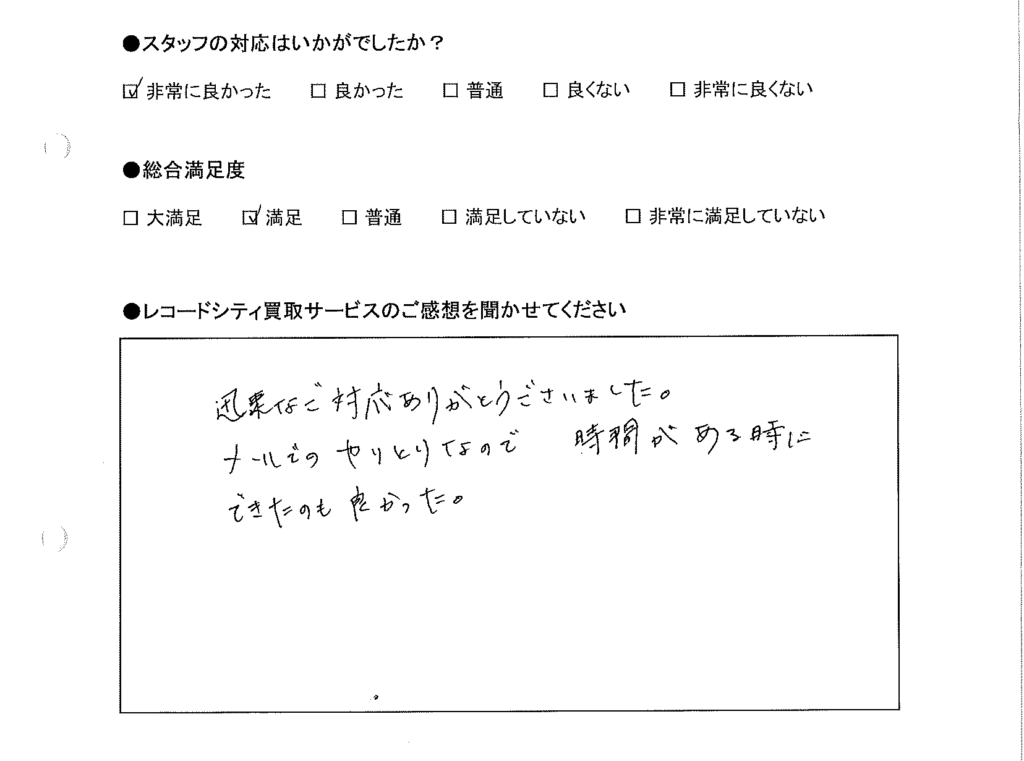 ●スタッフの対応はいかがでしたか？
☑ 非常に良かった □ 良かった □ 普通 □ 良くない □ 非常に良くない
●総合満足度
□ 大満足 ☑ 満足 □ 普通 □ 満足していない □ 非常に満足していない
●レコードシティ買取サービスのご感想を聞かせてください
迅速なご対応ありがとうございました。
メールでのやりとりなので 時間がある時に
できたのも良かった。